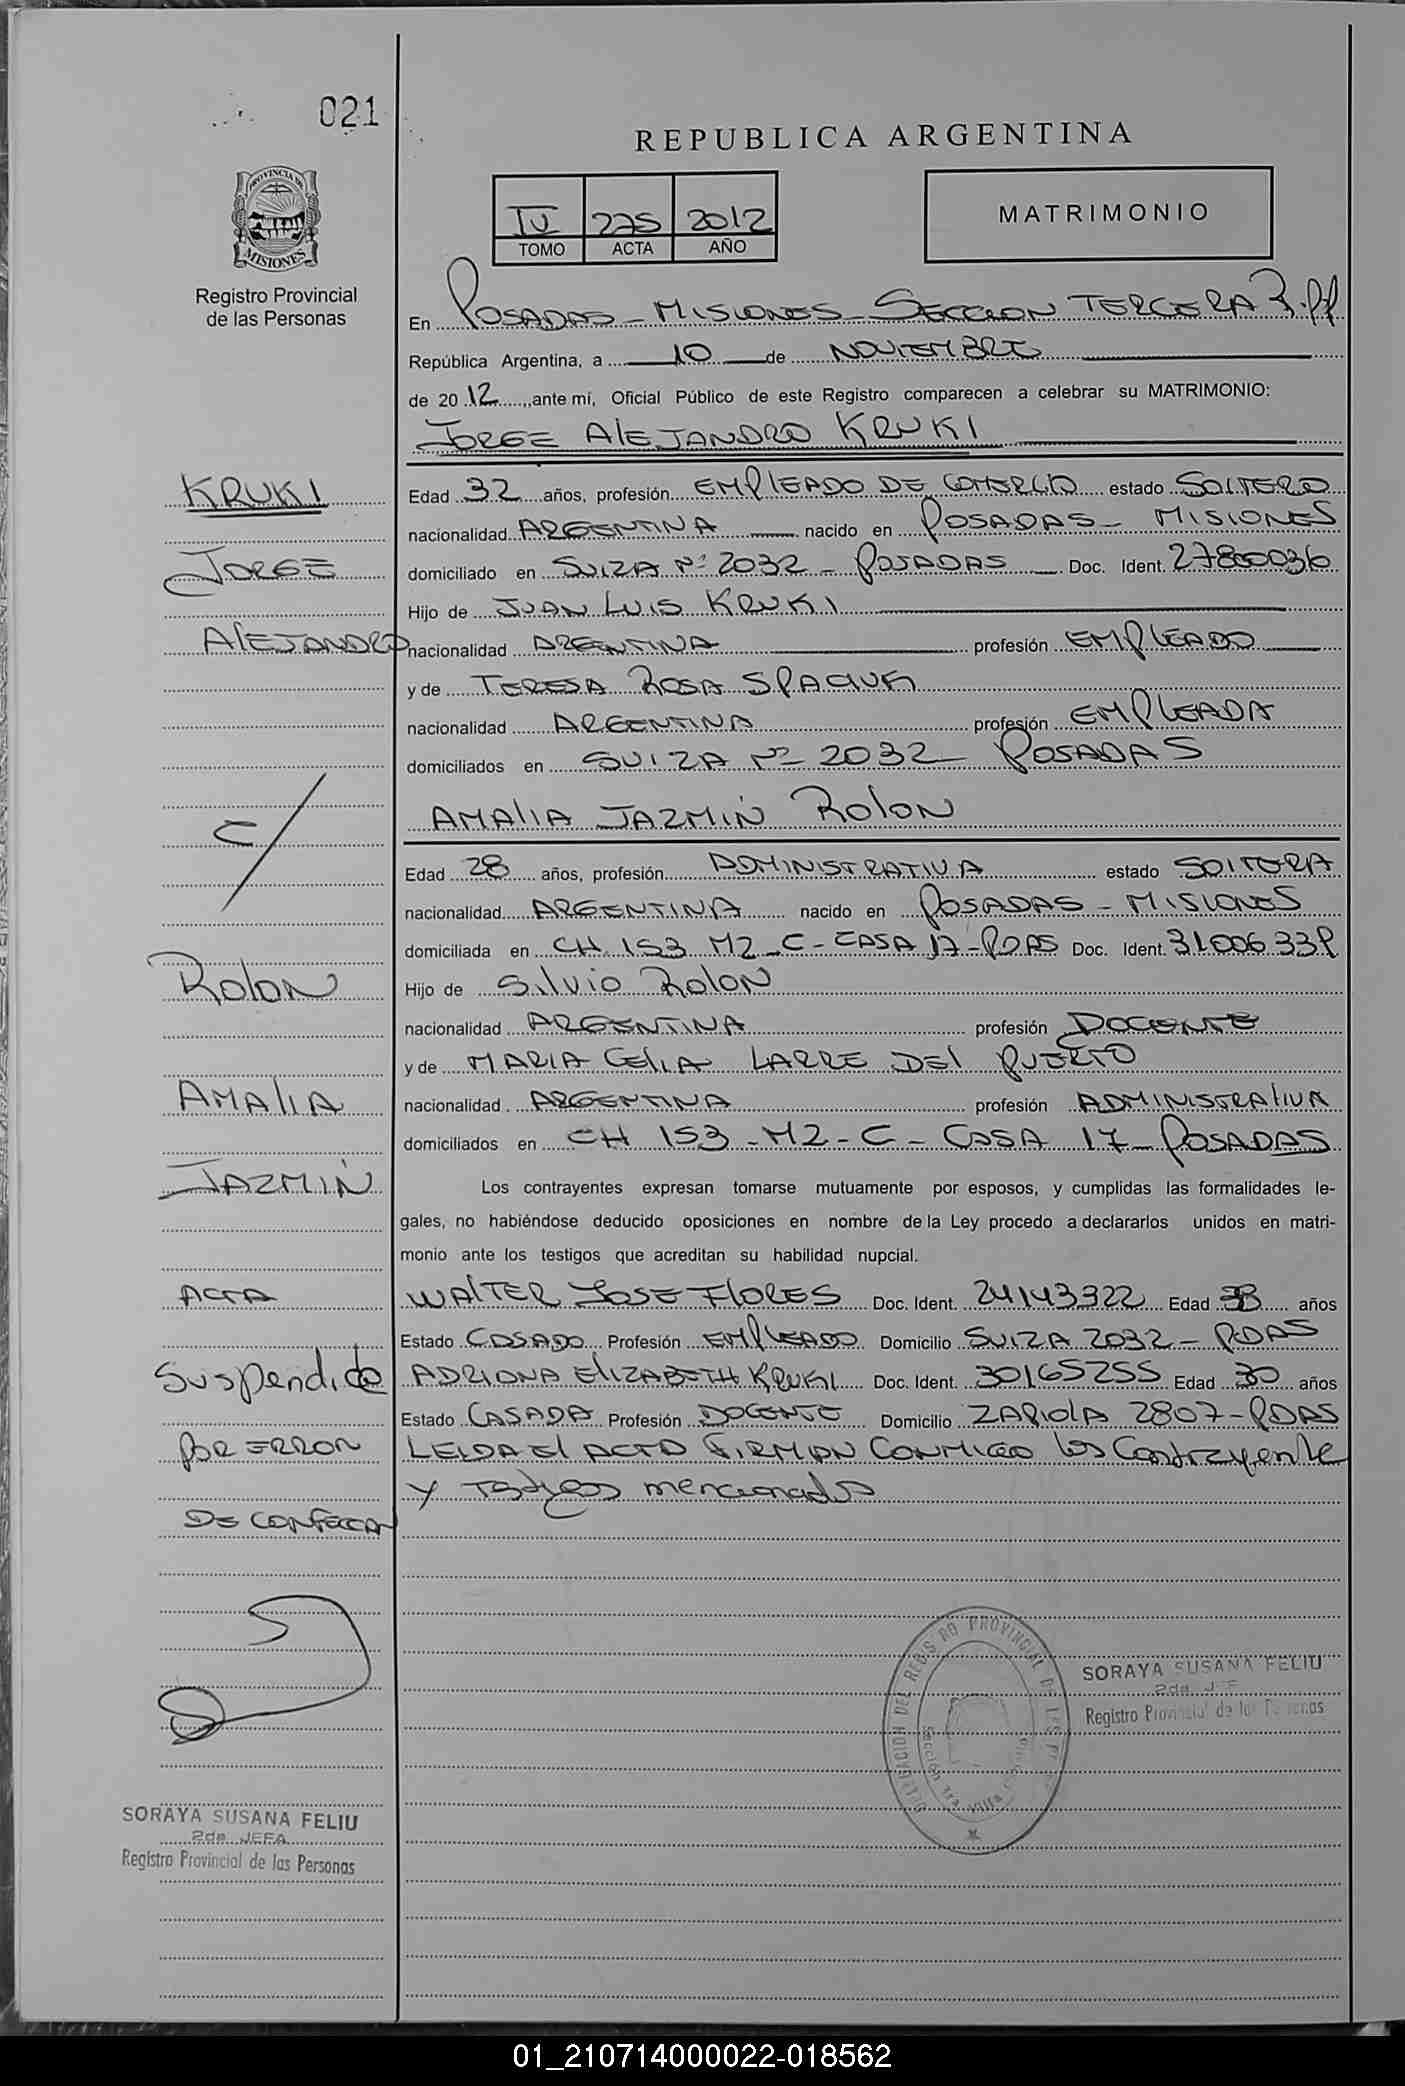 021
REPUBLICA ARGENTINA
PROVINCIA DE
MISIONES
Registro Provincial
de las Personas
IV 225 2012
TOMO ACTA AÑO
MATRIMONIO
En POSADAS - MISIONES - SECCION TERCERA
República Argentina, a 10 de NOVIEMBRE
de 2012, ante mí, Oficial Público de este Registro comparecen a celebrar su MATRIMONIO:
JORGE ALEJANDRO KRUKI
KRUKI
JORGE
ALEJANDRO
Edad 32 años, profesión EMPLEADO DE COMERCIO estado SOLTERO
nacionalidad ARGENTINA nacido en POSADAS - MISIONES
domiciliado en SUIZA Nº 2032 - POSADAS Doc. Ident. 27800036
Hijo de JUAN LUIS KRUKI
nacionalidad ARGENTINA profesión EMPLEADO
y de TERESA ROSA SPACIUK
nacionalidad ARGENTINA profesión EMPLEADA
domiciliados en SUIZA Nº 2032 - POSADAS
C/
AMALIA JAZMIN ROLON
Edad 28 años, profesión ADMINISTRATIVA estado SOLTERA
nacionalidad ARGENTINA nacido en POSADAS - MISIONES
domiciliada en CH 153 M2 - C - CASA 17 - PDAS Doc. Ident. 31006339
ROLON
AMALIA
JAZMIN
Hijo de Silvio Rolon
nacionalidad ARGENTINA profesión DOCENTE
y de MARIA CELIA LARRE DEL PUERTO
nacionalidad ARGENTINA profesión ADMINISTRATIVA
domiciliados en CH 153 - M2 - C - CASA 17 - POSADAS
Los contrayentes expresan tomarse mutuamente por esposos, y cumplidas las formalidades le-
gales, no habiéndose deducido oposiciones en nombre de la Ley procedo a declararlos unidos en matri-
monio ante los testigos que acreditan su habilidad nupcial.
WALTER JOSE FLORES Doc. Ident. 24143922 Edad 38 años
Estado CASADO Profesión EMPLEADO Domicilio SUIZA 2032 - PDAS
ADRIANA ELIZABETH KRUKI Doc. Ident. 30165255 Edad 30 años
Estado CASADA Profesión DOCENTE Domicilio ZAPIOLA 2807 - PDAS
LEIDA El ACTA FIRMAN CONMIGO los Contrayente
y Testigos mencionados
ACTA
Suspendida
POR ERROR
DE CONFECCA
DELEGACION DEL REGISTRO PROVINCIAL DE LAS
Sección 3ra. Villa
SORAYA SUSANA FELIU
2da. JEFA
Registro Provincial de las Personas
SORAYA SUSANA FELIU
2da. JEFA
Registro Provincial de las Personas
01_210714000022-018562